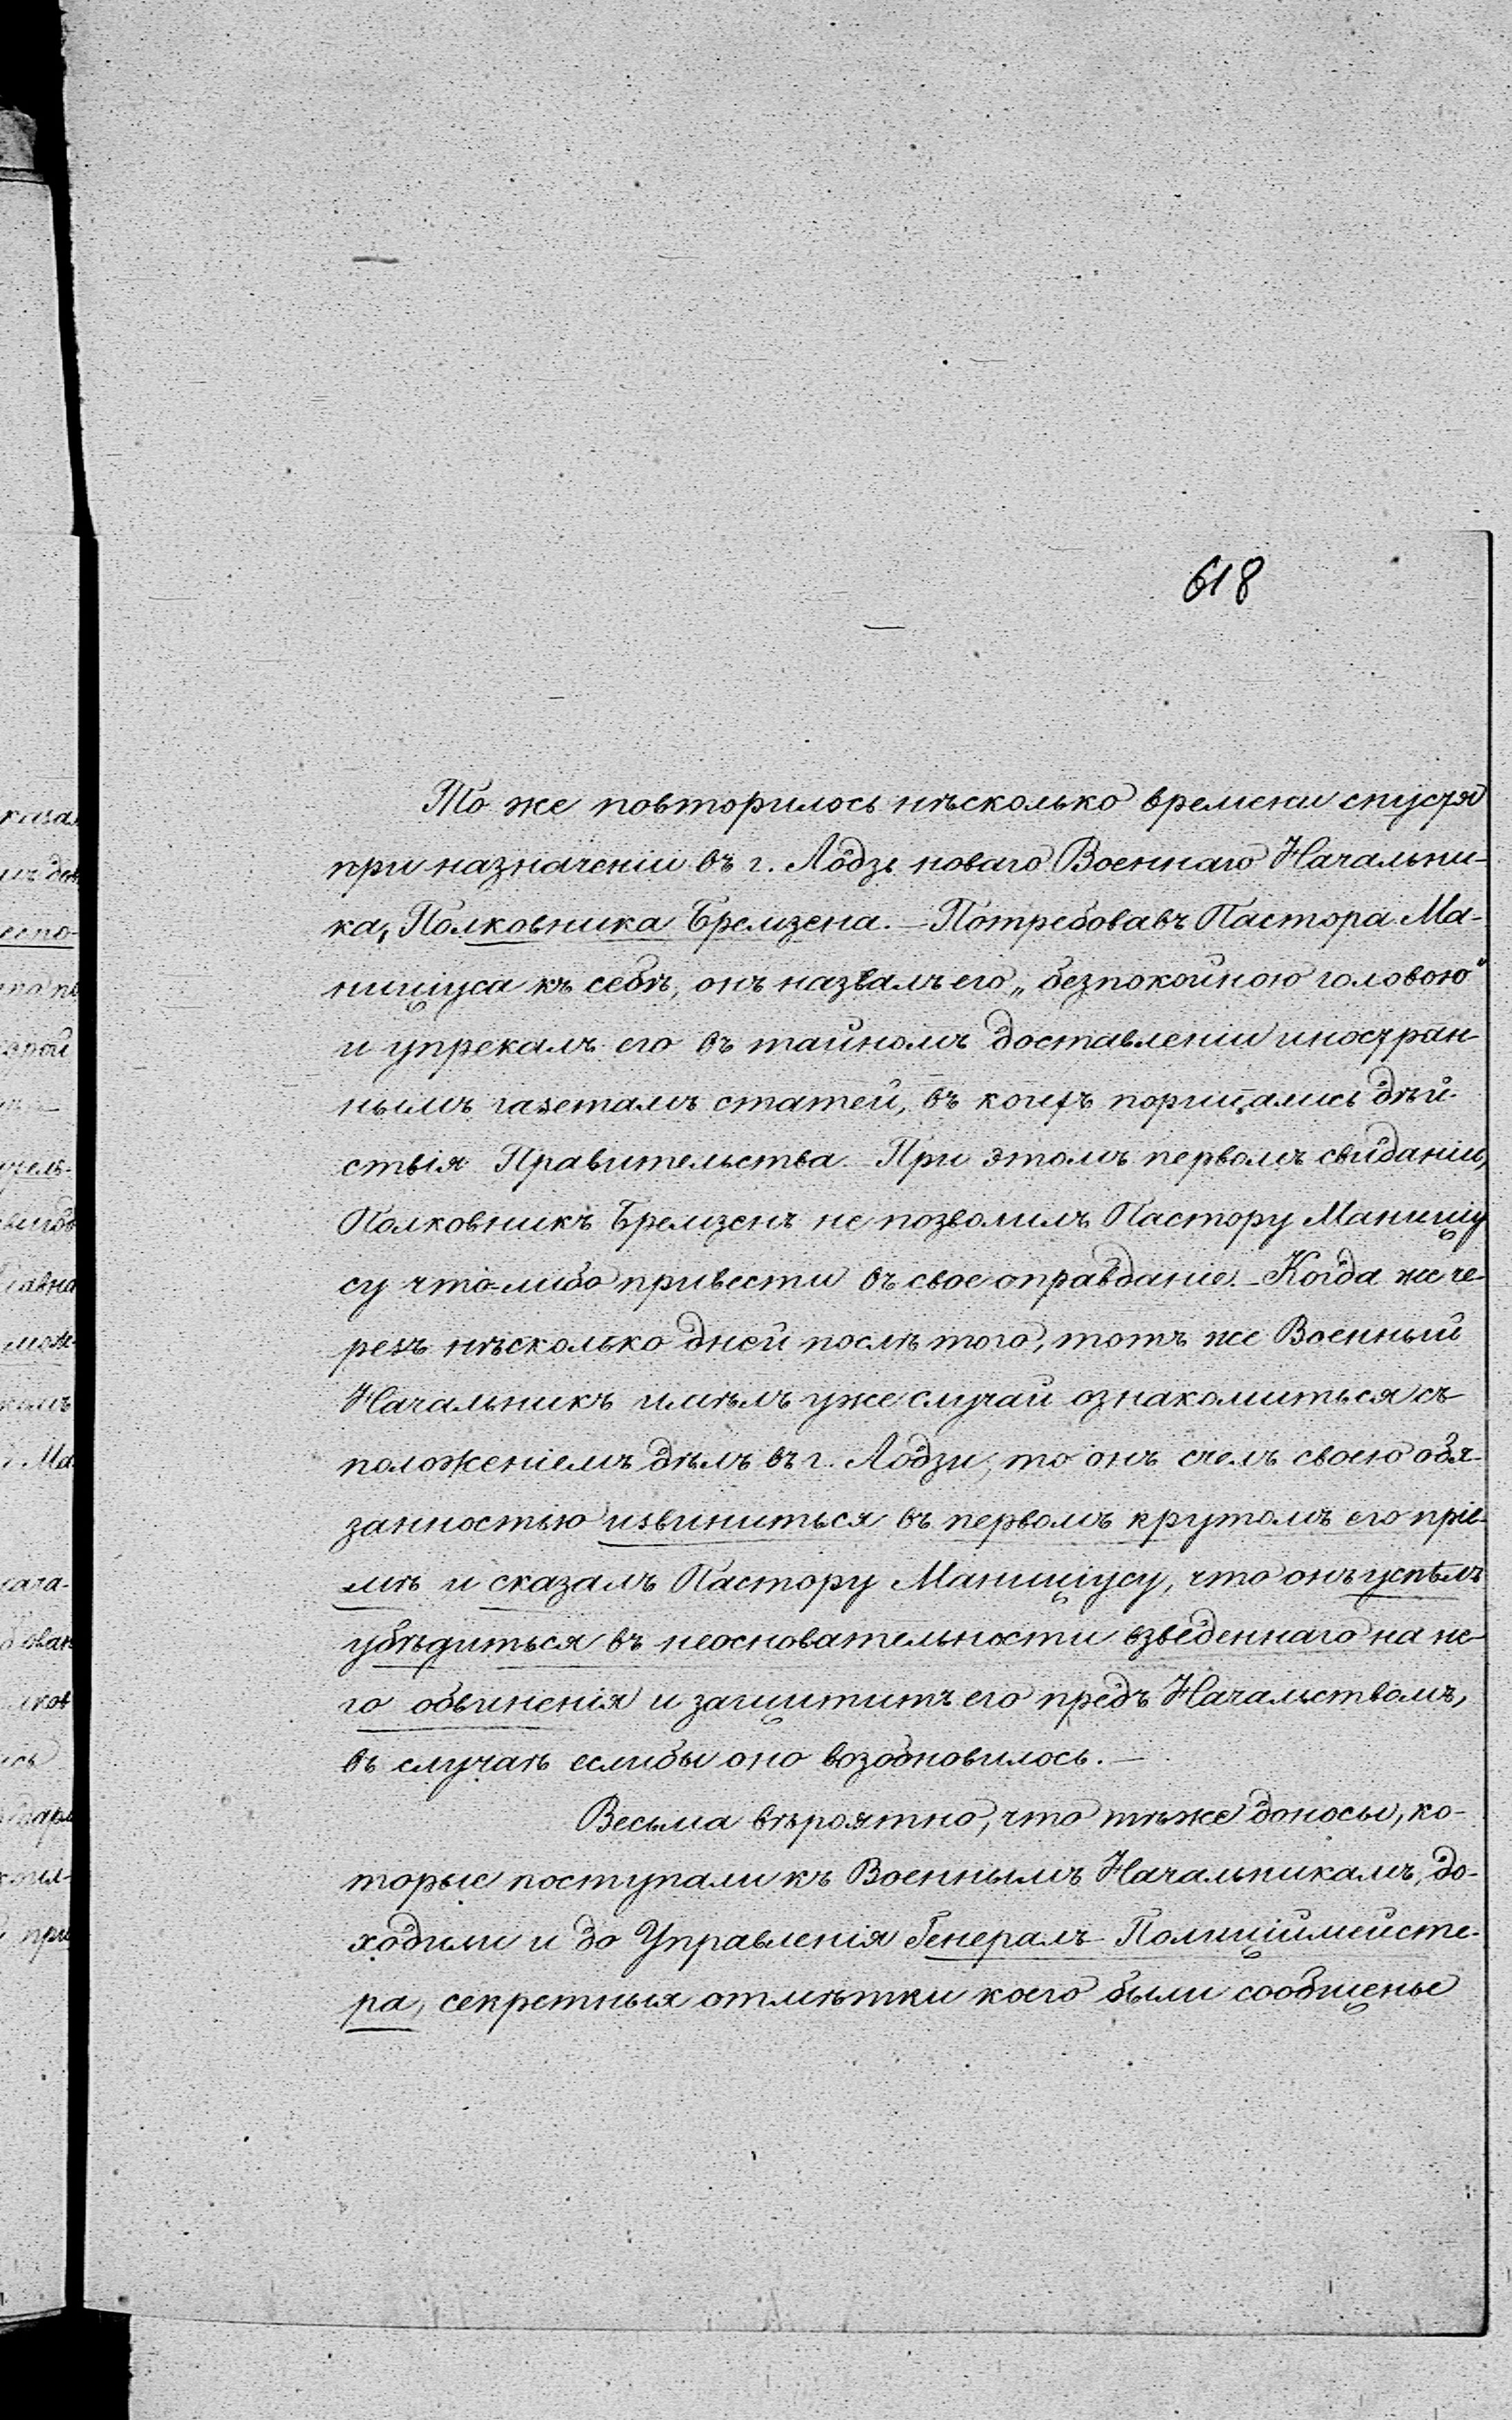 618
То же повторилось нѣсколько времени спустя
при назначеніи въ г. Лодзь новаго Военнаго Начальни-
ка, Полковника Бремзена. – Потребовавъ Пастора Ма-
ниціуса къ себѣ, онъ назвалъ его „безпокойною головою“
и упрекалъ его въ тайномъ доставленіи иностран
нымъ газетамъ статей, въ коихъ порицались дѣй-
ствія Правительства. – При этомъ первомъ свиданіи,
Полковникъ Бремзенъ не позволилъ Пастору Маниціу
су что-либо привести въ свое оправданіе. – Когда же че-
резъ нѣсколько дней послѣ того, тотъ же Военный
Начальникъ имѣлъ уже случай ознакомиться съ
положеніемъ дѣлъ въ г. Лодзи, то онъ счелъ своею обя-
занностью извиниться въ первомъ крутомъ его пріе-
мѣ и сказалъ Пастору Маниціусу, что онъ успѣлъ
убѣдиться въ неосновательности взведеннаго на не-
го обвиненія и защититъ его предъ Начальствомъ,
въ случаѣ еслибы оно возобновилось. –
Весьма вѣроятно, что тѣже доносы, ко-
торые поступали къ Военнымъ Начальникамъ, до-
ходили и до Управленія Генералъ-Полиціймейсте-
ра, секретныя отмѣтки коего были сообщены